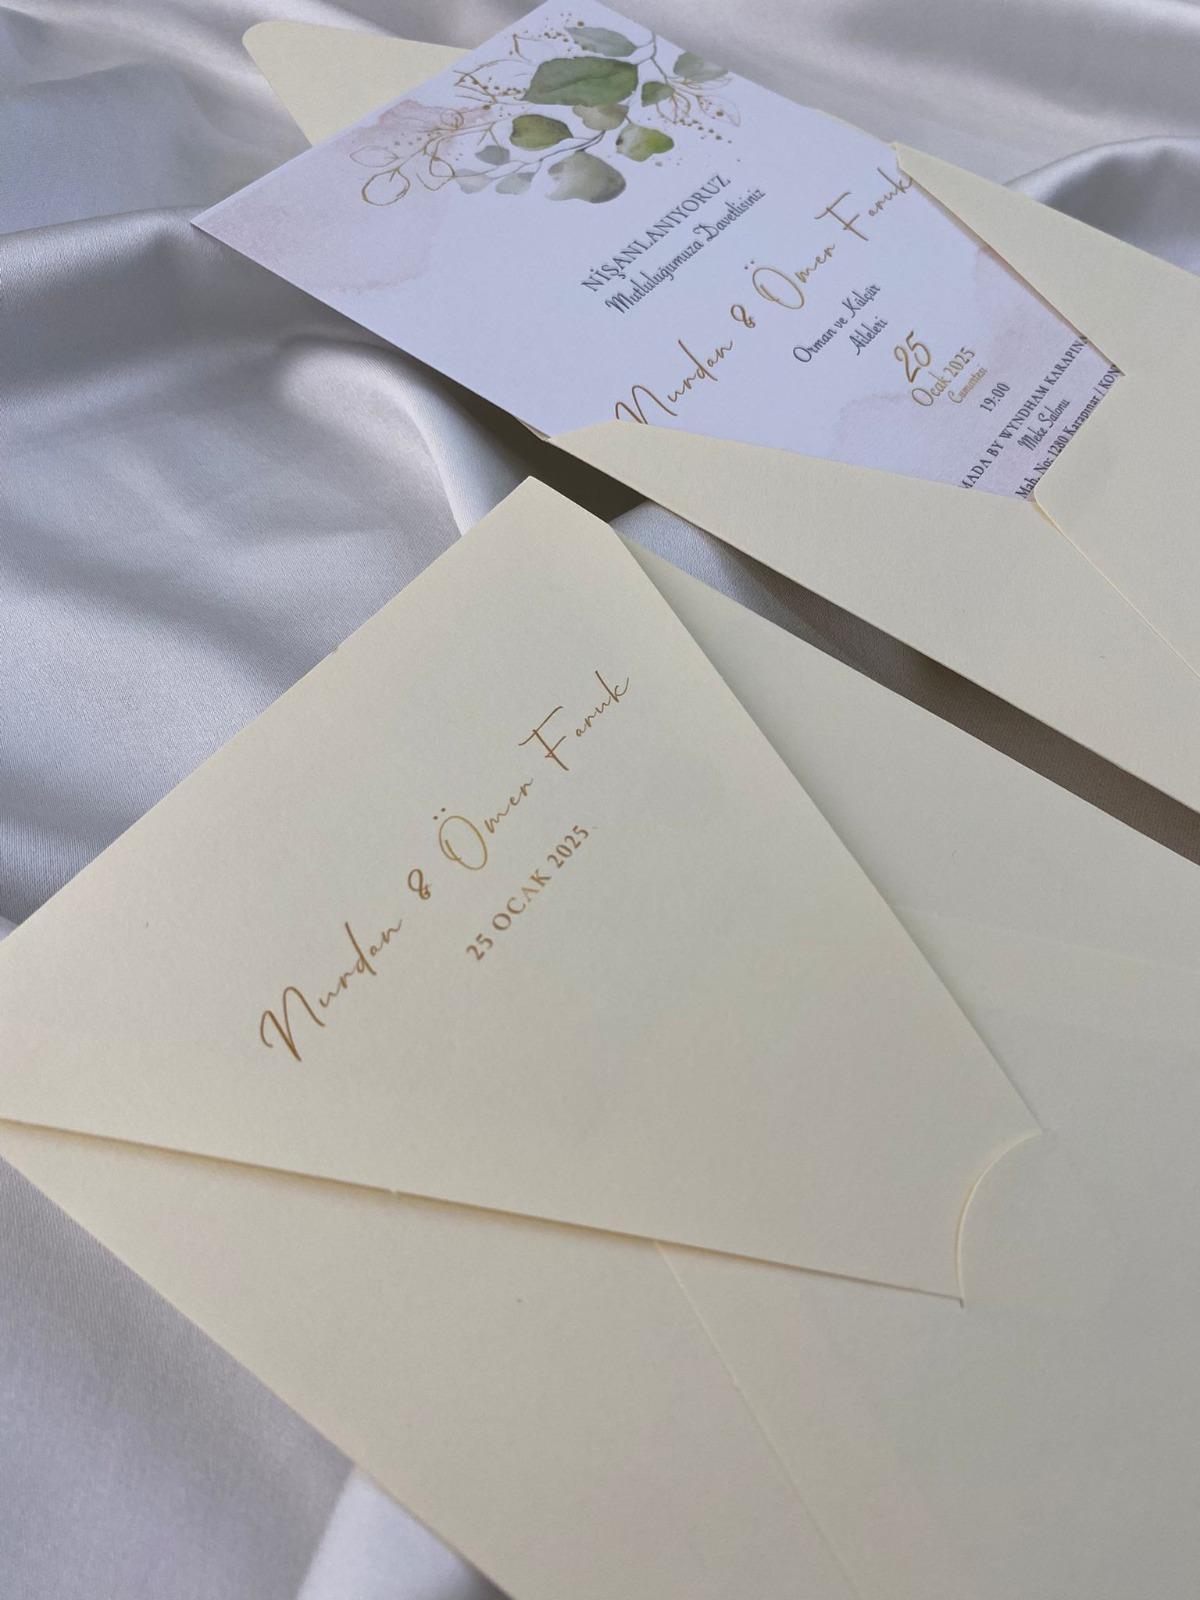 NİŞANLANIYORUZ
Mutluluğumuza Davetlisiniz
Nurdan & Ömer Faruk
Orman ve Külçür
Aileleri
25
Ocak 2025
Cumartesi
19:00
MADA BY WYNDHAM KARAPINA
Meke Salonu
Mah. No: 1280 Karapınar / KON
Nurdan & Ömer Faruk
25 OCAK 2025